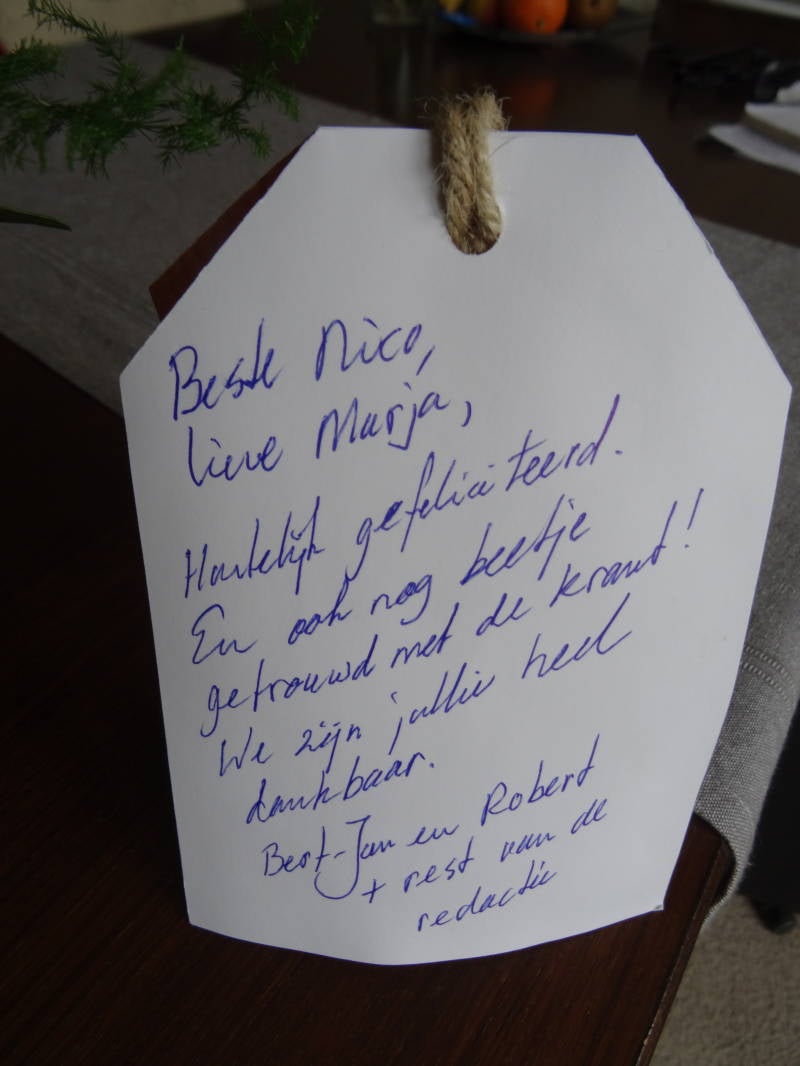 Beste Nico,
lieve Marja,
Hartelijk gefeliciteerd.
En ook nog beetje
getrouwd met de krant!
We zijn jullie heel
dankbaar.
Bert-Jan en Robert
+ rest van de
redactie